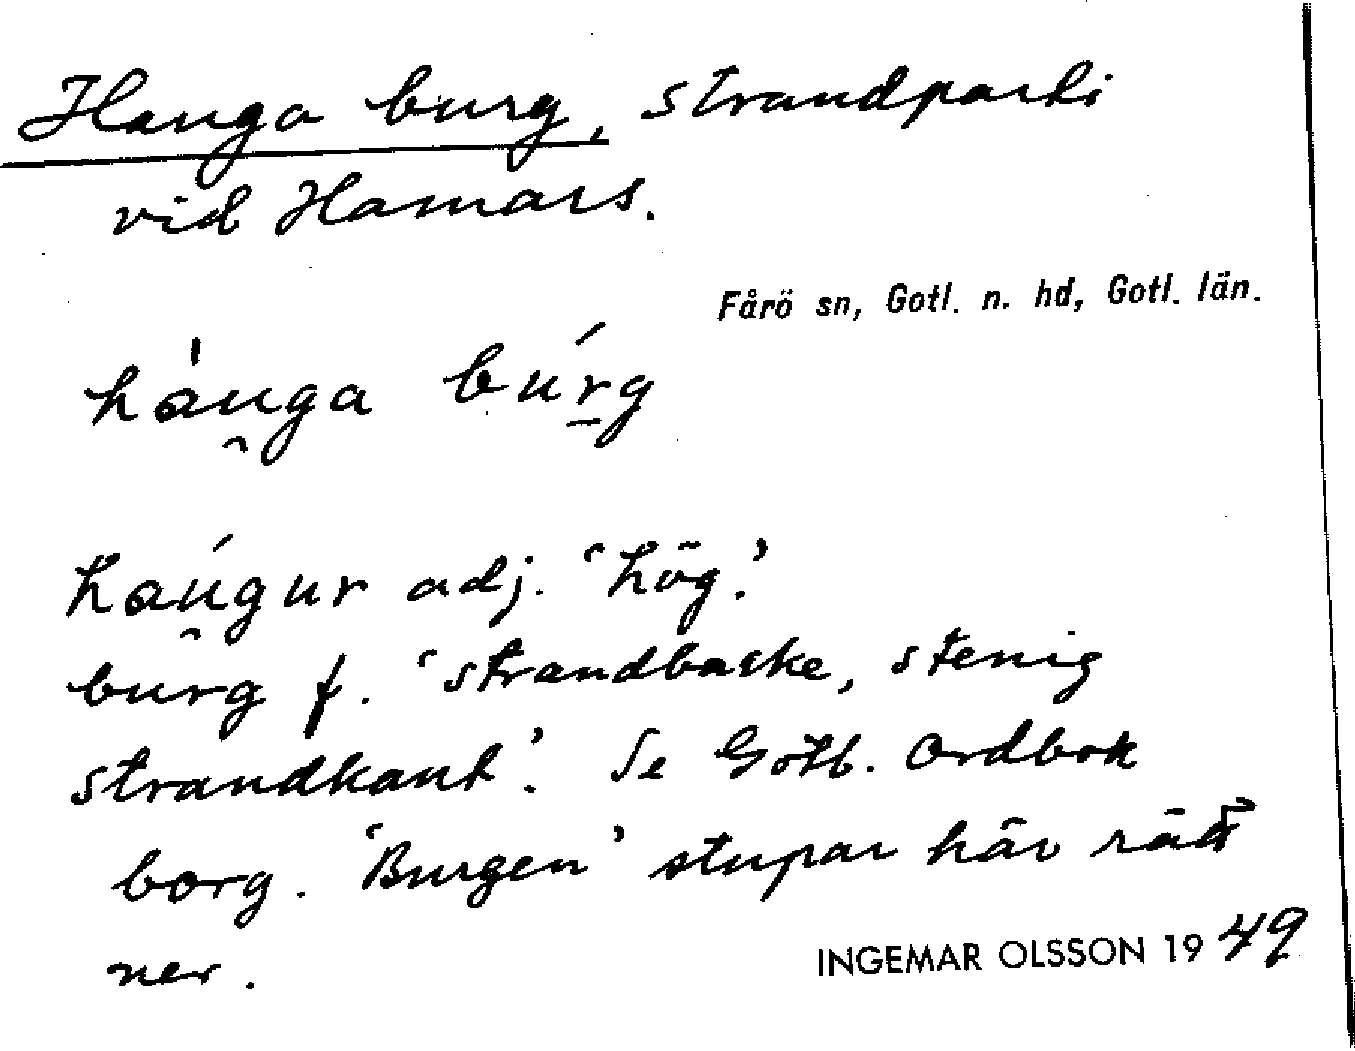 Hauga burg, strandparti
vid Hamars.
Fårö sn, Gotl. n. hd, Gotl. län.
hàu̯ga búrg
haúgur adj. 'hög'.
burg f. 'strandbacke, stenig
strandkant'. Se Gotl. Ordbok
borg. 'Burgen' stupar här rätt
ner.
INGEMAR OLSSON 1949